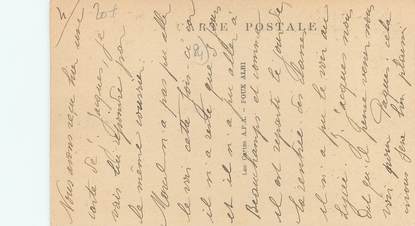 CARTE POSTALE
Les Cartes A.P.A. - POUX ALBI
Nous avons reçu hier une
carte de J. Jacques, je
vais lui répondre par
le même courrier.
Marcel n'a pas pu aller
le voir cette fois ci car
il n'a resté que 3 jours
et il n'a pu aller à
Beauchamps et comme
il est reparti le jour de
la rentrée des classes
il n'a pu le voir au
Lycée. J. Jacques nous
dit qu'il pense venir nous
voir pour Pâques, cela
nous fera bien plaisir.